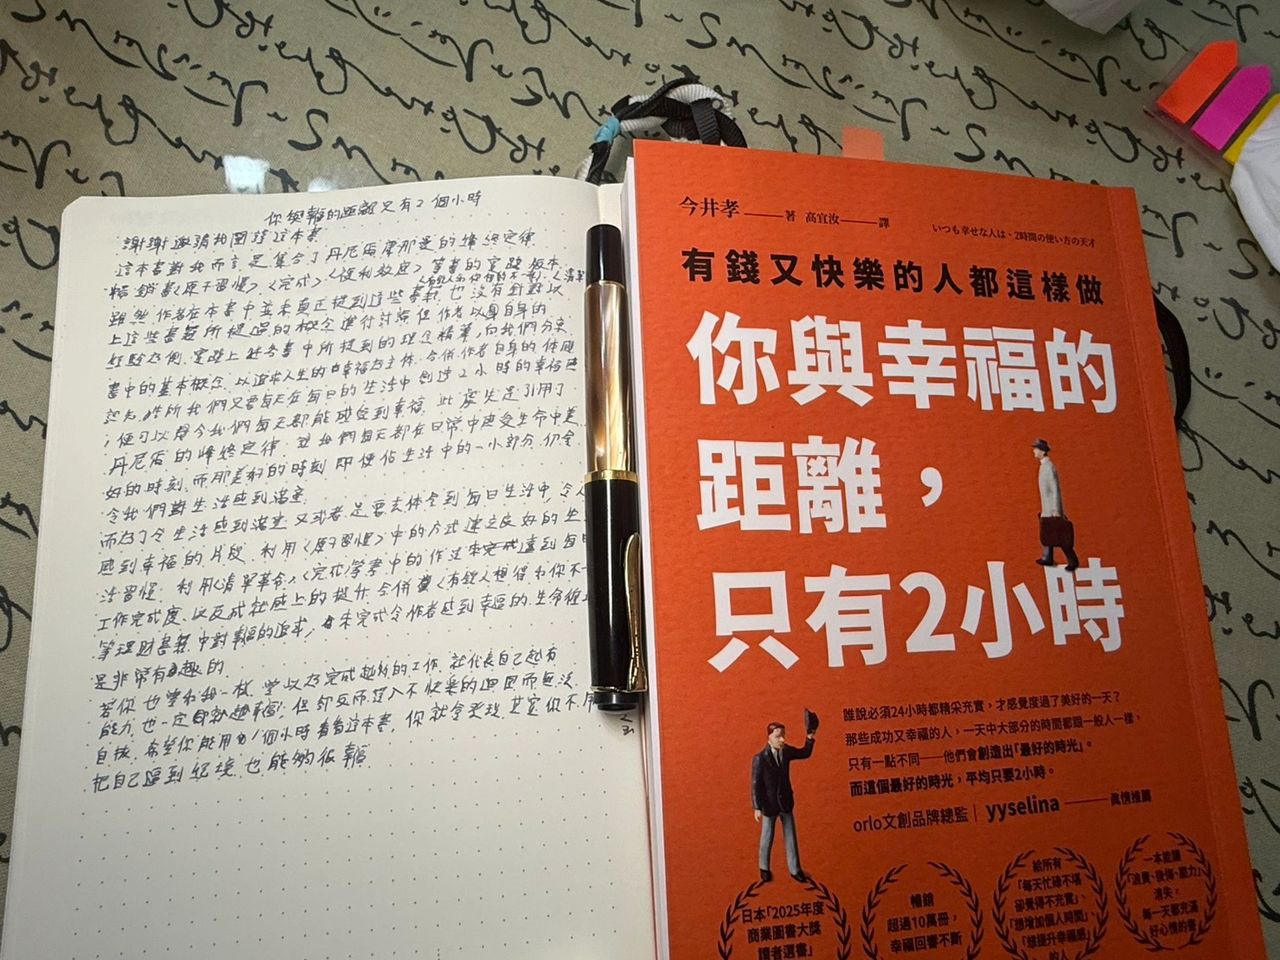 你與幸福的距離只有2個小時
謝謝邀請我閱讀這本書
這本書對我而言是集合了丹尼爾康那曼的峰終定律
暢銷書《原子習慣》、《完成》、《復利效應》等書的實踐版本
《有錢人和你想的不一樣》、《清單
雖然作者在本書中並未真正提到這些書籍,也沒有針對以
上這些書籍所提過的概念進行討論,但作者以身自身的
經驗為例,實踐上述各書中所提到的理念精華,向我們分享
書中的基本概念,以追求人生的幸福為主体,合併作者自身的体
我們又要每天在每日的生活中創造2小時的幸福
,便可以令我們每天都能感受到幸福,此處先是引用了
丹尼爾的峰終定律,讓我們每天都在日常中感受生命中美
好的時刻,而那美好的時刻即使佔生活中的一小部分,仍会
令我們對生活感到滿意
而為了令生活感到滿意,又或者是要去体会到每日生活中,令人
感到幸福的片段,利用《原子習慣》中的方式建立良好的生
活習慣,利用《清單革命》、《完成》等書中的作法達到每日
工作完成度,以及成就感上的提升,合併《有錢人想得和你不一
等理財書籍中對幸福的追求,來完成令作者感到幸福的生命
是非常有趣的
若你也曾和我一樣,曾以為完成越多的工作,就代表自己越有
能力,也一定就越幸福,但卻反而落入不快樂的迴圈而無法
自拔,希望你能用1個小時看看這本書,你就會發現,其實你不用
把自己逼到絕境,也能夠很幸福
今井孝——著 高宜汝——譯
いつも幸せな人は、2時間の使い方の天才
有錢又快樂的人都這樣做
你與幸福的
距離,
只有2小時
誰說必須24小時都精采充實,才感覺度過了美好的一天?
那些成功又幸福的人,一天中大部分的時間都跟一般人一樣,
只有一點不同——他們會創造出「最好的時光」。
而這個最好的時光,平均只要2小時。
orlo文創品牌總監|yyselina——真情推薦
日本「2025年度
商業圖書大獎
讀者選書」
暢銷
超過10萬冊,
幸福回響不斷
給所有
「每天忙碌不堪
卻覺得不充實」、
「想增加個人時間」、
「想提升幸福感」
的人
一本能讓
「浪費、後悔、壓力」
消失,
每一天都充滿
好心情的書